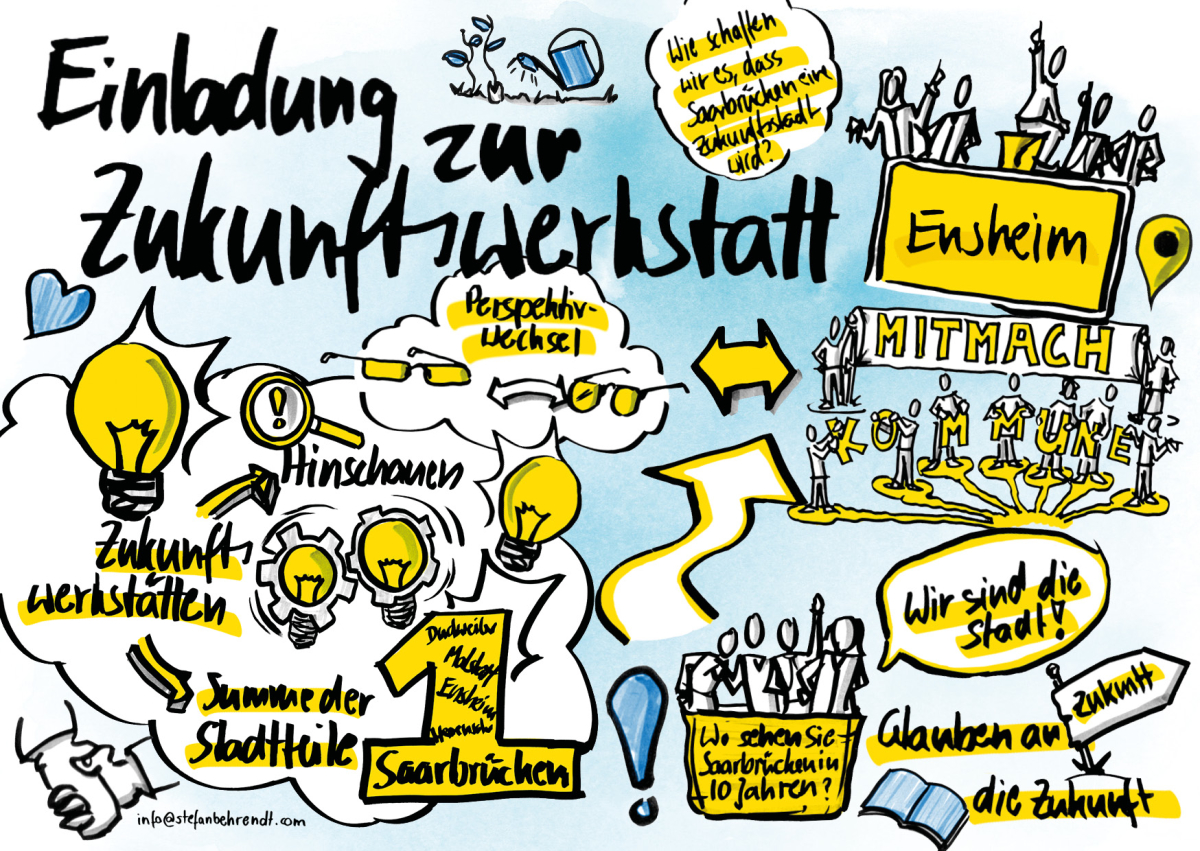 Einladung
zur
Zukunftswerkstatt
Wie schaffen
wir es, dass
Saarbrücken eine
Zukunftsstadt
wird?
Ensheim
MITMACH
KOMMUNE
Perspektiv-
wechsel
Hinschauen
Zukunfts
werkstätten
Summe der
Stadtteile
Dudweiler
Malstatt
Ensheim
Saarbrücken
Wir sind die
Stadt!
Wo sehen Sie
Saarbrücken in
10 Jahren?
Zukunft
Glauben an
die Zukunft
info@stefanbehrendt.com